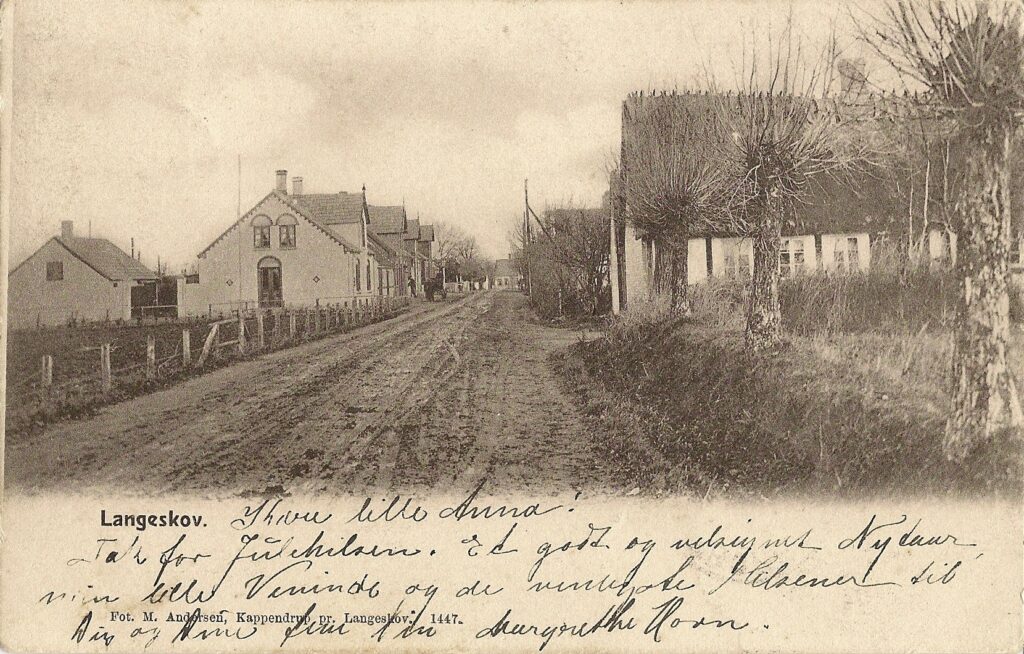 Langeskov.
Kære lille Anna!
Tak for Julehilsen. Et godt og velsignet Nytaar,
min lille Veninde og de venligste Hilsener til
Dig og Dine fra Din Margrethe Horn.
Fot. M. Andersen, Kappendrup pr. Langeskov. 1447.